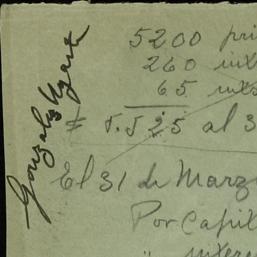 Gonzalez Ugarte
5200 pri
260 int
65 ints
# 5.525 al 3
El 31 de Marz
Por Capit
" intere